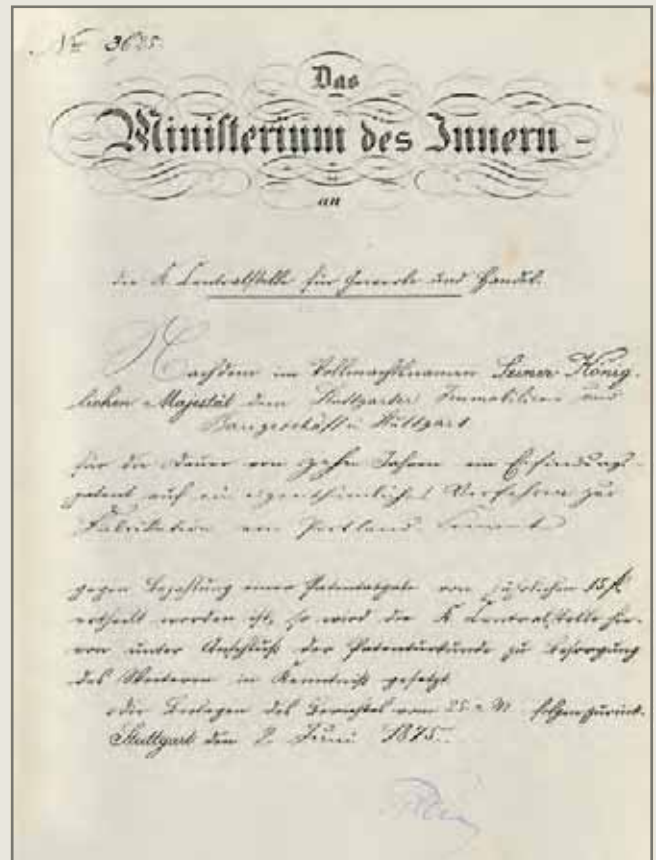 No 3625.
Das
Ministerium des Innern
an
die K Centralstelle für Gewerbe und Handel.
Nachdem im Vollmachtsnamen Seiner König-
lichen Majestät dem Stuttgarter Immobilien und
Baugeschäft in Stuttgart
für die Dauer von zehn Jahren ein Erfindungs-
patent auf ein eigenthümliches Verfahren zur
Fabrikation von Portland-Cement
gegen Bezahlung einer Patentabgabe von jährlichen 15 f
ertheilt worden ist, so wird die K Centralstelle hie-
von unter Anschluß der Patenturkunde zu Besorgung
des Weiteren in Kenntniß gesetzt.
Die Beilagen des Berichtes vom 25. v. M. folgen zurück.
Stuttgart den 2. Juni 1875.